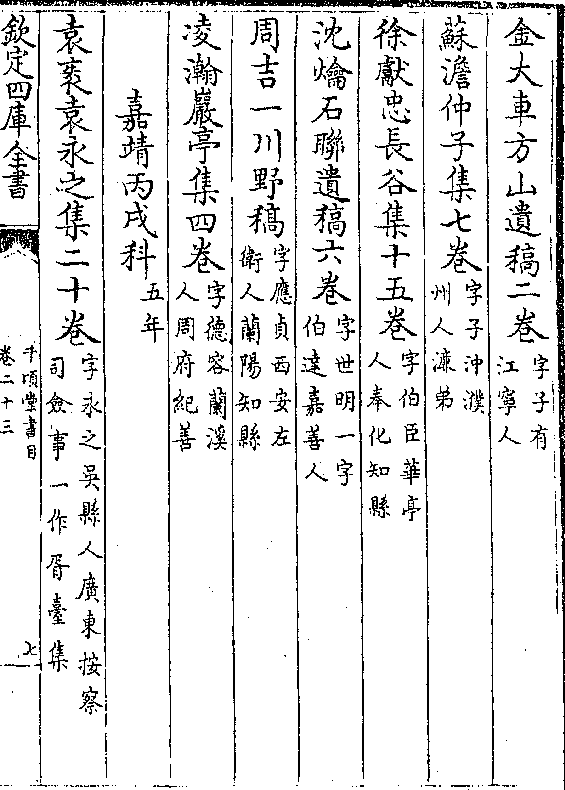 金大車方山遺稿二卷字子有江寧人
蘇澹仲子集七卷字子沖濮州人濂弟
徐獻忠長谷集十五卷字伯臣華亭人奉化知縣
沈爚石聯遺稿六卷字世明一字伯達嘉善人
周吉一川野稿字應貞西安左衛人蘭陽知縣
凌瀚巖亭集四卷字德容蘭溪人周府紀善
嘉靖丙戌科五年
袁袠袁永之集二十卷字永之吳縣人廣東按察司僉事一作胥臺集
欽定四庫全書
千頃堂書目
卷二十三
七